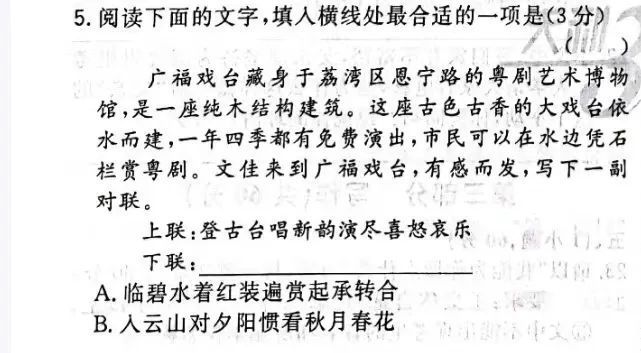 5. 阅读下面的文字,填入横线处最合适的一项是(3分)
(    )
广福戏台藏身于荔湾区恩宁路的粤剧艺术博物
馆,是一座纯木结构建筑。这座古色古香的大戏台依
水而建,一年四季都有免费演出,市民可以在水边凭石
栏赏粤剧。文佳来到广福戏台,有感而发,写下一副
对联。
上联:登古台唱新韵演尽喜怒哀乐
下联:
A. 临碧水着红装遍赏起承转合
B. 入云山对夕阳惯看秋月春花